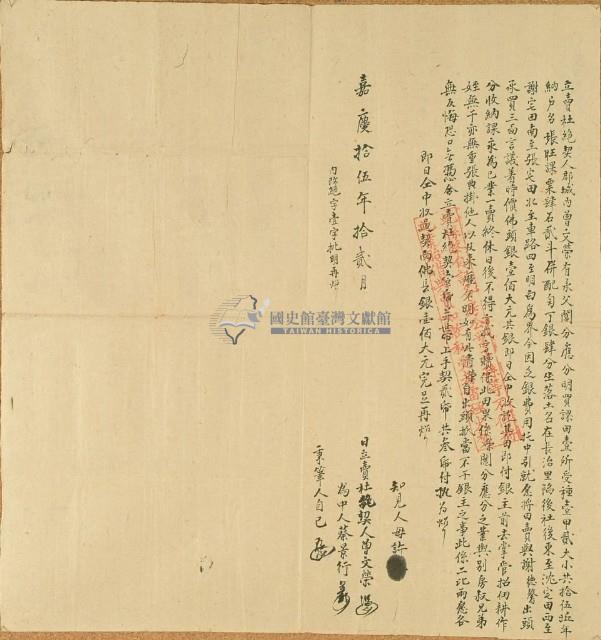 立賣杜絕契人郡城內曾文榮有承父鬮分應分明買課田壹所受種壹甲貳大小共拾伍坵年
納戶名張旺課粟肆石貳斗併配勻丁銀肆分坐落土名在長治里隙後社後東至沈宅田西至
謝宅田南至張宅田北至車路四至明白為界今因乏銀費用托中引就愿將田賣與謝德馨出頭
承買三面言議着時價佛頭銀壹佰大元其銀即日仝中收訖其田即付銀主前去掌管招佃耕作
分收納課永為己業一賣終休日後不得言找言贖保此田果係榮鬮分應分之業與別房叔兄弟
姪無干亦無重張典掛他人以及來歷不明如有此情榮自出頭抵當不干銀主之事此係二比兩愿各
無反悔恐口無憑今立賣杜絕契壹帋并帶上手契貳帋共叁帋付執為炤
即日仝中收過契內佛頭銀壹佰大元完足再炤
嘉慶拾伍年拾貳月
內添絕字壹字批明再炤
知見人母許
日立賣杜絕契人曾文榮
為中人蔡景行
秉筆人自己
國史館臺灣文獻館
TAIWAN HISTORICA